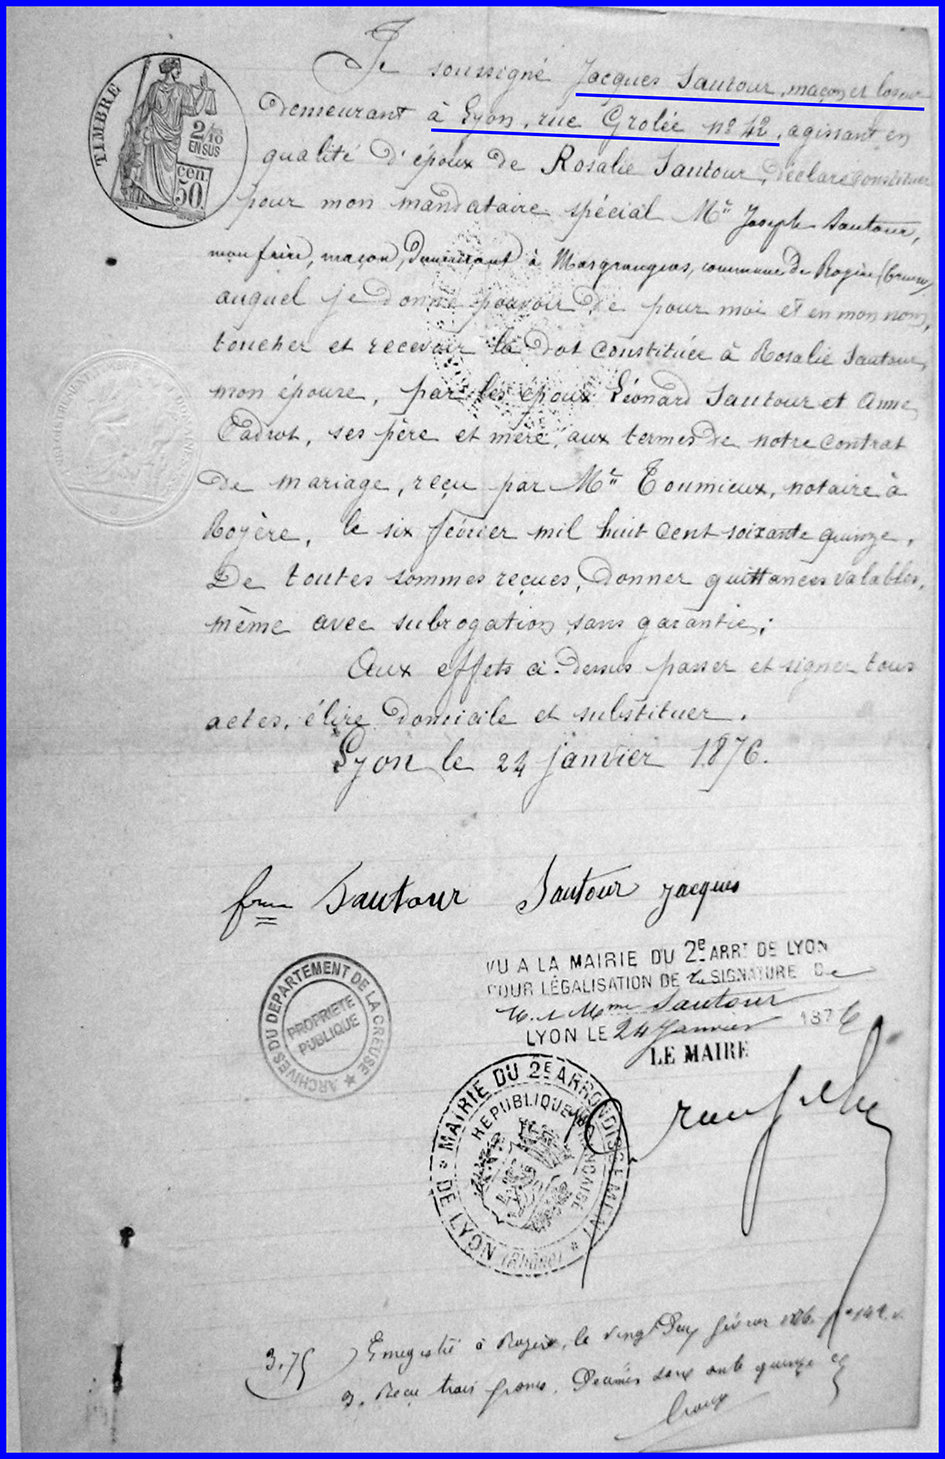 TIMBRE
2/10
EN SUS
50 cen.
Je soussigné Jacques Sautour, maçon et
demeurant à Lyon, rue Grolée n° 42, agissant en
qualité d'époux de Rosalie Sautour, déclare constituer
pour mon mandataire spécial Mr Joseph Sautour,
mon frère, maçon, demeurant à Masgrangeas, commune de Royère (Creuse)
auquel je donne pouvoir de pour moi et en mon nom,
toucher et recevoir la dot constituée à Rosalie Sautour,
mon épouse, par les époux Léonard Sautour et Anne
Cadrot, ses père et mère, aux termes de notre contrat
de mariage, reçu par Mr Toumieux, notaire à
Royère, le six février mil huit cent soixante quinze.
De toutes sommes reçues, donner quittances valables,
même avec subrogation sans garantie;
Aux effets ci-dessus passer et signer tous
actes, élire domicile et substituer.
Lyon le 24 janvier 1876.
fme Sautour Sautour Jacques
VU A LA MAIRIE DU 2e ARRt DE LYON
POUR LÉGALISATION DE la SIGNATURE De
M. et Mme Sautour
LYON LE 24 Janvier 1876
LE MAIRE
ARCHIVES DU DÉPARTEMENT DE LA CREUSE
PROPRIÉTÉ
PUBLIQUE
MAIRIE DU 2E ARRONDISSEMENT DE LYON
RÉPUBLIQUE FRANÇAISE
(RHÔNE)
3,75 Enregistré à Royère, le vingt deux février 1876, fo 142.
Reçu trois francs. Décimes soixante quinze c